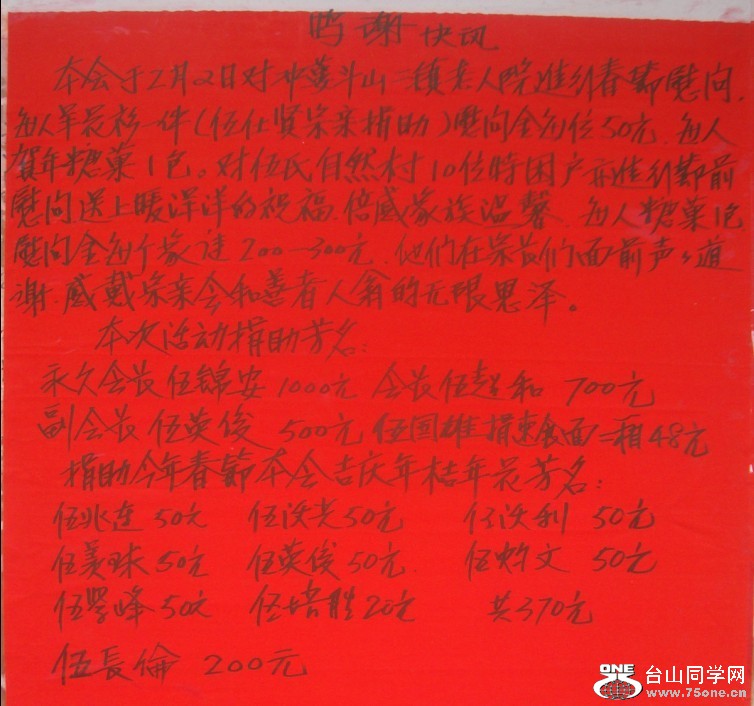 鸣谢快讯
本会于2月2日对冲蒌斗山二镇老人院进行春节慰问,
每人羊毛衫一件(伍仕贤宗亲捐助)慰问金每位50元.每人
贺年糖菓1包。对伍氏自然村10位特困户亦进行節前
慰问,送上暖洋洋的祝福,倍感家族温馨.每人糖菓1包
慰问金每个家庭200—300元.他们在宗長们面前声声道
谢.感戴宗亲会和善者人翁的无限恩泽。
本次活动捐助芳名:
永久会长伍锦安1000元 会長伍超和 700元
副会長 伍英俊 500元 伍国雄捐速食面二箱48元
捐助今年春節本会吉庆年桔年花芳名:
伍兆连50元 伍沃光50元 伍沃利 50元
伍美球50元 伍英俊50元. 伍灼文 50元
伍峰50元 伍培胜20元 共370元
伍長倫 200元
ONE 台山同学网
www.75one.cn